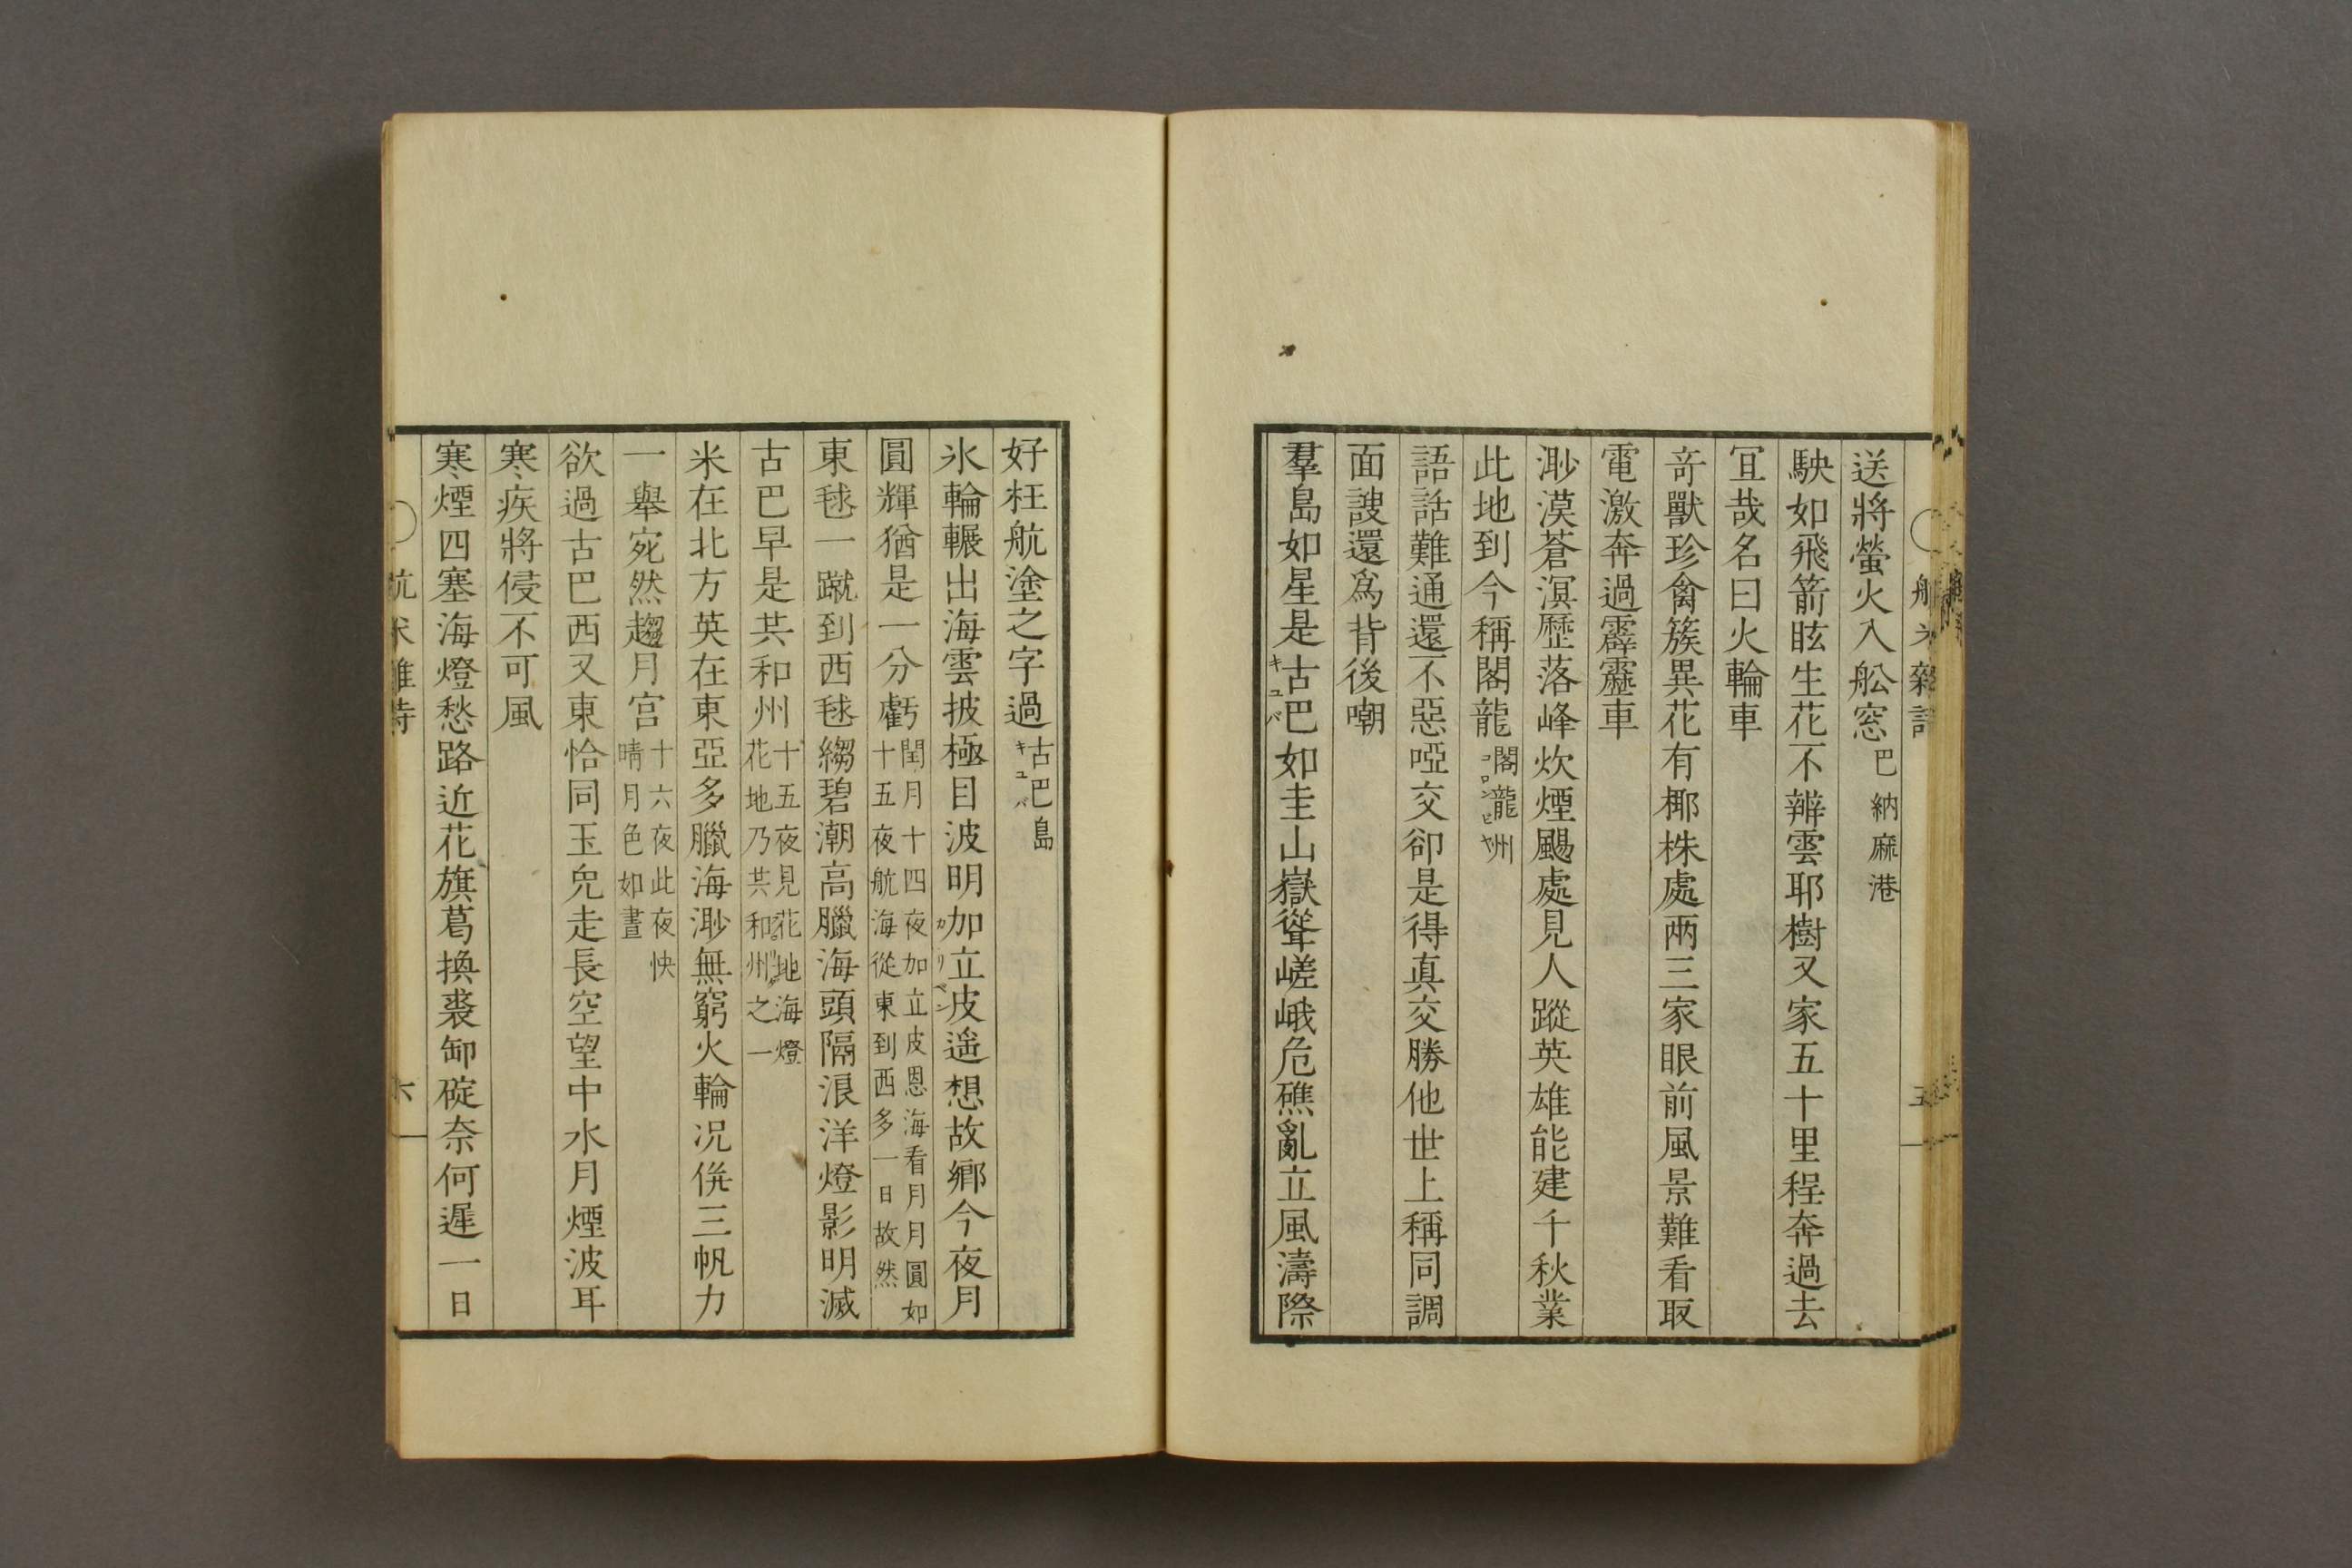 送將螢火入舩窓 巴納麻港
駚如飛箭眩生花不辨雲耶樹又家五十里程奔過去
冝哉名曰火輪車
竒獸珍禽簇異花有椰株處兩三家眼前風景難看取
電激奔過霹靂車
渺漠蒼溟歷落峰炊煙颺處見人蹤英雄能建千秋業
此地到今稱閣龍 閣瀧州 コロンビヤ
語話難通還不惡啞交卻是得真交勝他世上稱同調
面謏還爲背後嘲
羣島如星是古巴如圭山嶽聳嵯峨危礁亂立風濤際
キュバ
好枉航塗之字過 古巴島 キュバ
氷輪輾出海雲披極目波明加立皮遥想故鄉今夜月
カリベン
圓輝猶是一分虧 閏月十四夜加立皮恩海看月月圓如
十五夜航海從東到西多一日故然
東毬一蹴到西毬縐碧潮高臘海頭隔浪洋燈影明滅
古巴早是共和州 十五夜見花地海燈
花地乃共和州之一
米在北方英在東亞多臘海渺無窮火輪况倂三帆力
一舉宛然趨月宮 十六夜此夜快
晴月色如晝
欲過古巴西又東恰同玉兔走長空望中水月煙波耳
寒疾將侵不可風
寒煙四塞海燈愁路近花旗葛換裘卸碇奈何遲一日
六